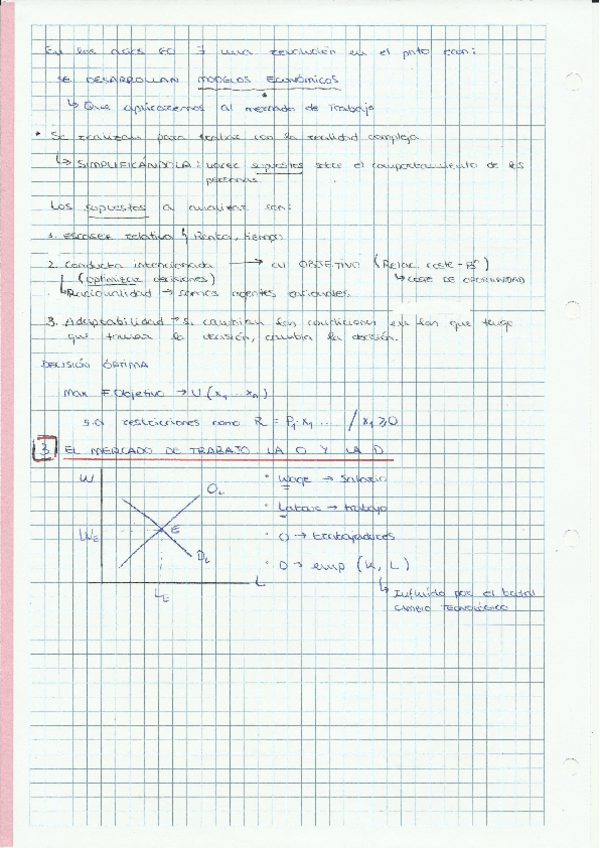 En los años 60 ∃ una revolución en el pnto econ:
se DESARROLLAN MODELOS ECONÓMICOS
↳ Que aplicaremos al mercado de Trabajo
* Se realizan para tratar con la realidad compleja
↳ SIMPLIFICÁNDOLA: hacer supuestos sbre el comportamiento de las
personas.
Los supuestos a analizar son:
1. escasez relativa Renta, tiempo
2. Conducta intencionada → cu OBJETIVO (Relac coste-Bº)
(optimizar decisiones) ↳ COSTE DE OPORTUNIDAD
↳ Racionalidad → somos agentes racionales
3. Adaptabilidad → Si cambian las condiciones en las que tengo
que tomar la decisión, cambia la decisión.
DECISIÓN ÓPTIMA
Max F Objetivo → U (x₁ ... xₙ)
s.a restricciones como R = P₁·x₁ ... / x₁ ≥ 0
3 EL MERCADO DE TRABAJO LA O Y LA D
W
O_L
W_E
E
D_L
L
L_E
* Wage → Salario
* Labour → trabajo
* O → trabajadores
* D → emp (K, L)
↳ Influido por el
CAMBIO TECNOLÓGICO